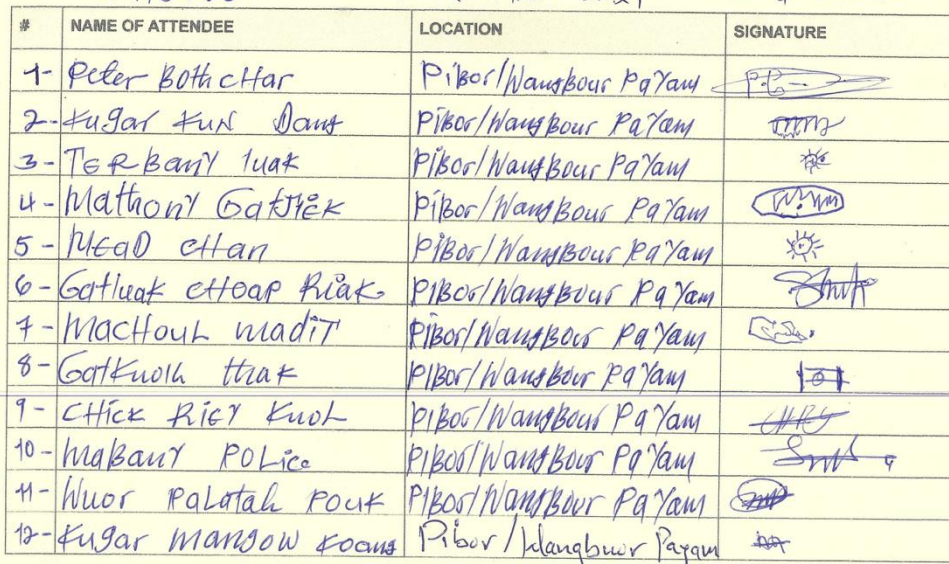 # NAME OF ATTENDEE LOCATION SIGNATURE
1- Peter Both cHar Pibor/WangBour PaYam
2- Kugar Kun Dang Pibor/WangBour PaYam
3- TERBanY luak Pibor/WangBour PaYam
4- MathonY GatJiEK Pibor/WangBour PaYam
5- MEaD cHan Pibor/WangBour PaYam
6- Gatluak cHoap Riak PIBor/WangBour PaYam
7- MacHouL madiT PIBor/WangBour PaYam
8- GatKuoth thak PIBor/WangBour PaYam
9- CHick RieY KuoL PIBor/WangBour PaYam
10- MaBanY POLice PIBor/WangBour PaYam
11- Wuor PaLatah Pouk PIBor/WangBour PaYam
12- Kugar mangow Koang Pibor/Wangbuor Payam